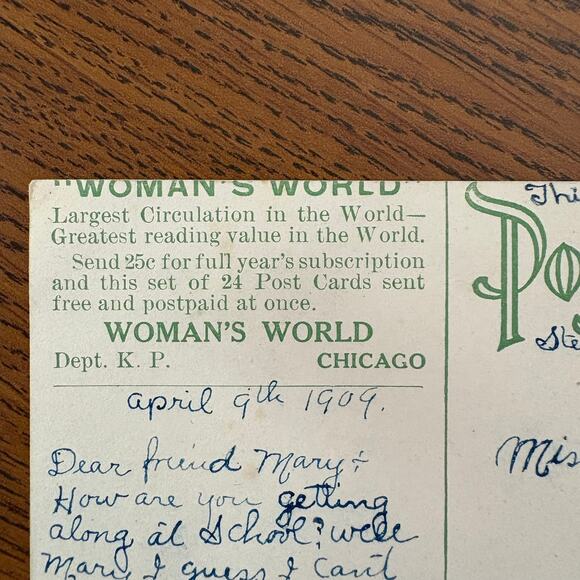 "WOMAN'S WORLD"
Largest Circulation in the World—
Greatest reading value in the World.
Send 25c for full year's subscription
and this set of 24 Post Cards sent
free and postpaid at once.
WOMAN'S WORLD
Dept. K. P. CHICAGO
april 9th 1909.
Dear friend Mary:
How are you getting
along at School? well
Mary I guess I can't
Thi
Po
Ste
Mis